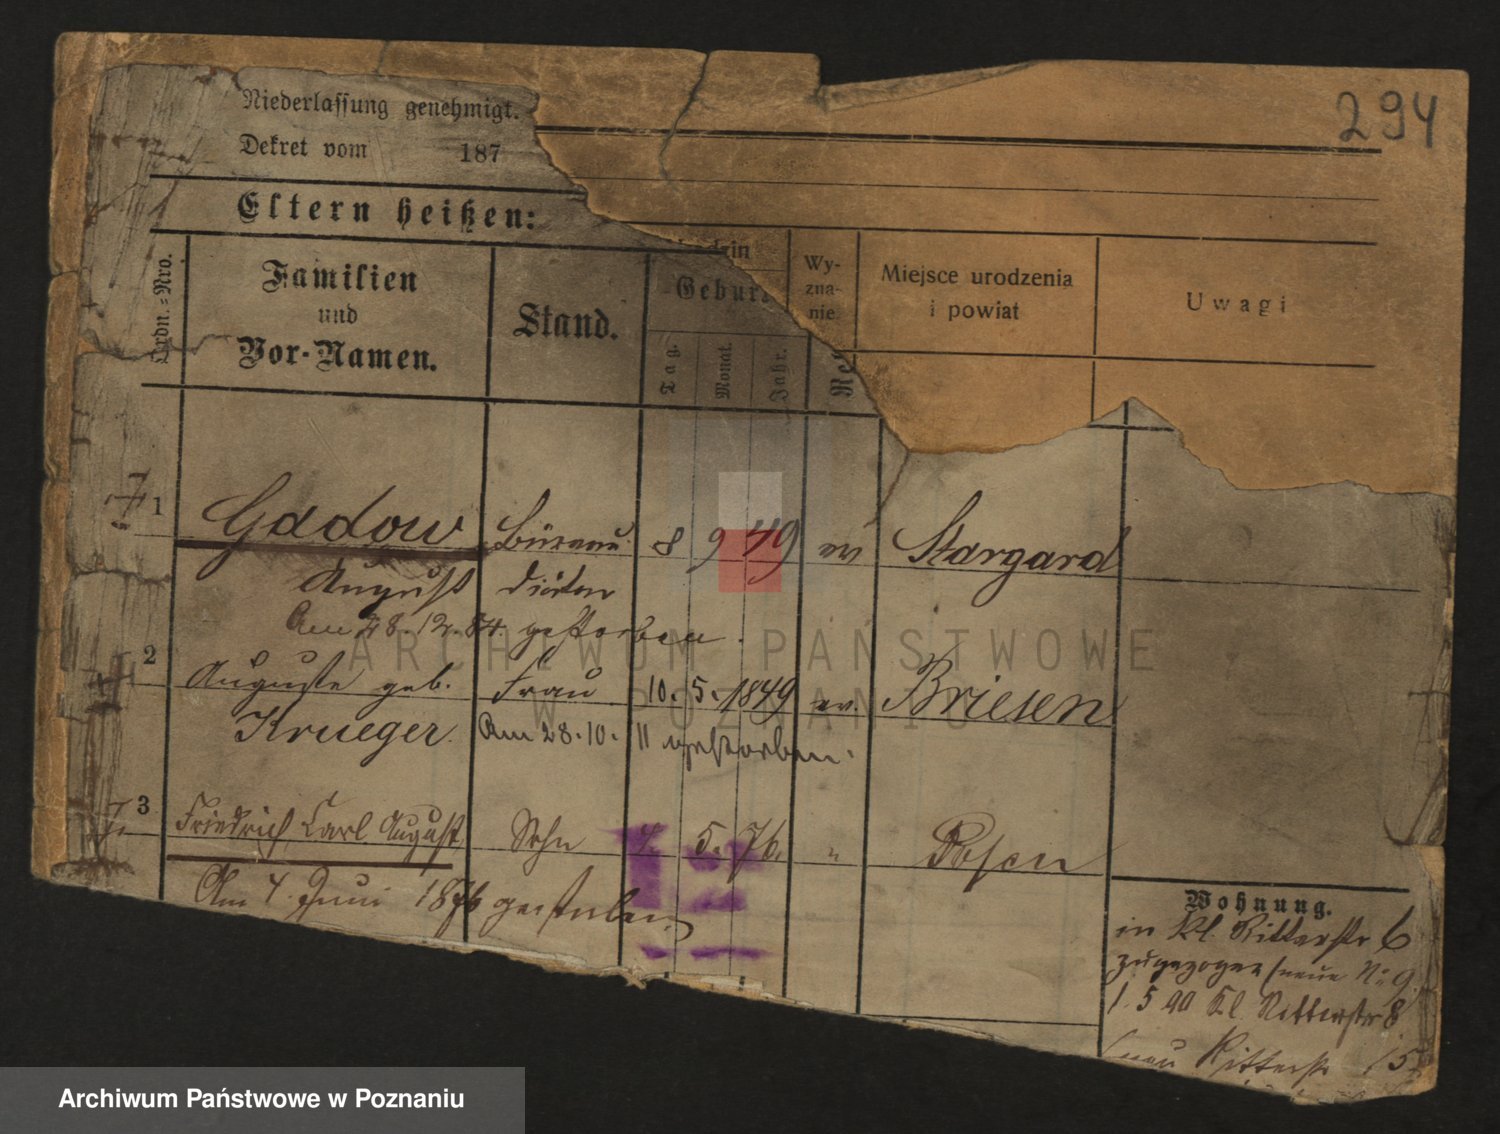 294
Niederlassung genehmigt.
Dekret vom 187
Eltern heißen:
Ordn.-Nro.
Familien
und
Vor-Namen.
Stand.
Gebur
Tag.
Monat.
Jahr.
Wy-
zna-
nie
Re
Miejsce urodzenia
i powiat
Uwagi
1 Gadow Büreau 8 9 49 ev Stargard
August Diätar
Am 28.12.84. gestorben.
2
Auguste geb. Frau 10. 5. 1849 ev. Briesen
Krueger. Am 28.10. 11 gestorben.
3 Friedrich Carl August Sohn 5. 76. " Posen
Am 4. Juni 1876 gestorben
Wohnung.
in Kl. Ritterstr 6
zugezogen (neue No 9
1. 5 90 Kl. Ritterstr 8
Ritterstr 15
ARCHIWUM PAŃSTWOWE
W POZNANIU
Archiwum Państwowe w Poznaniu